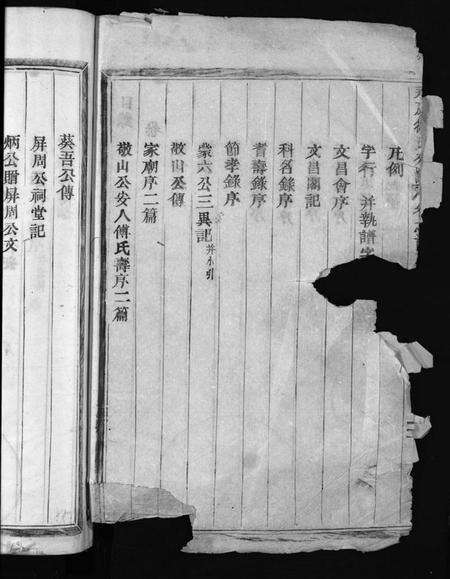 凡例
字行 并執譜字
文昌會序
文昌閣記
科名錄序
耆壽錄序
節孝錄序
崇六公三異記并小引
敬山公傳
家廟序二篇
敬山公安人傅氏壽序二篇
葵吾公傳
屏周公祠堂記
炳公贈屏周公文